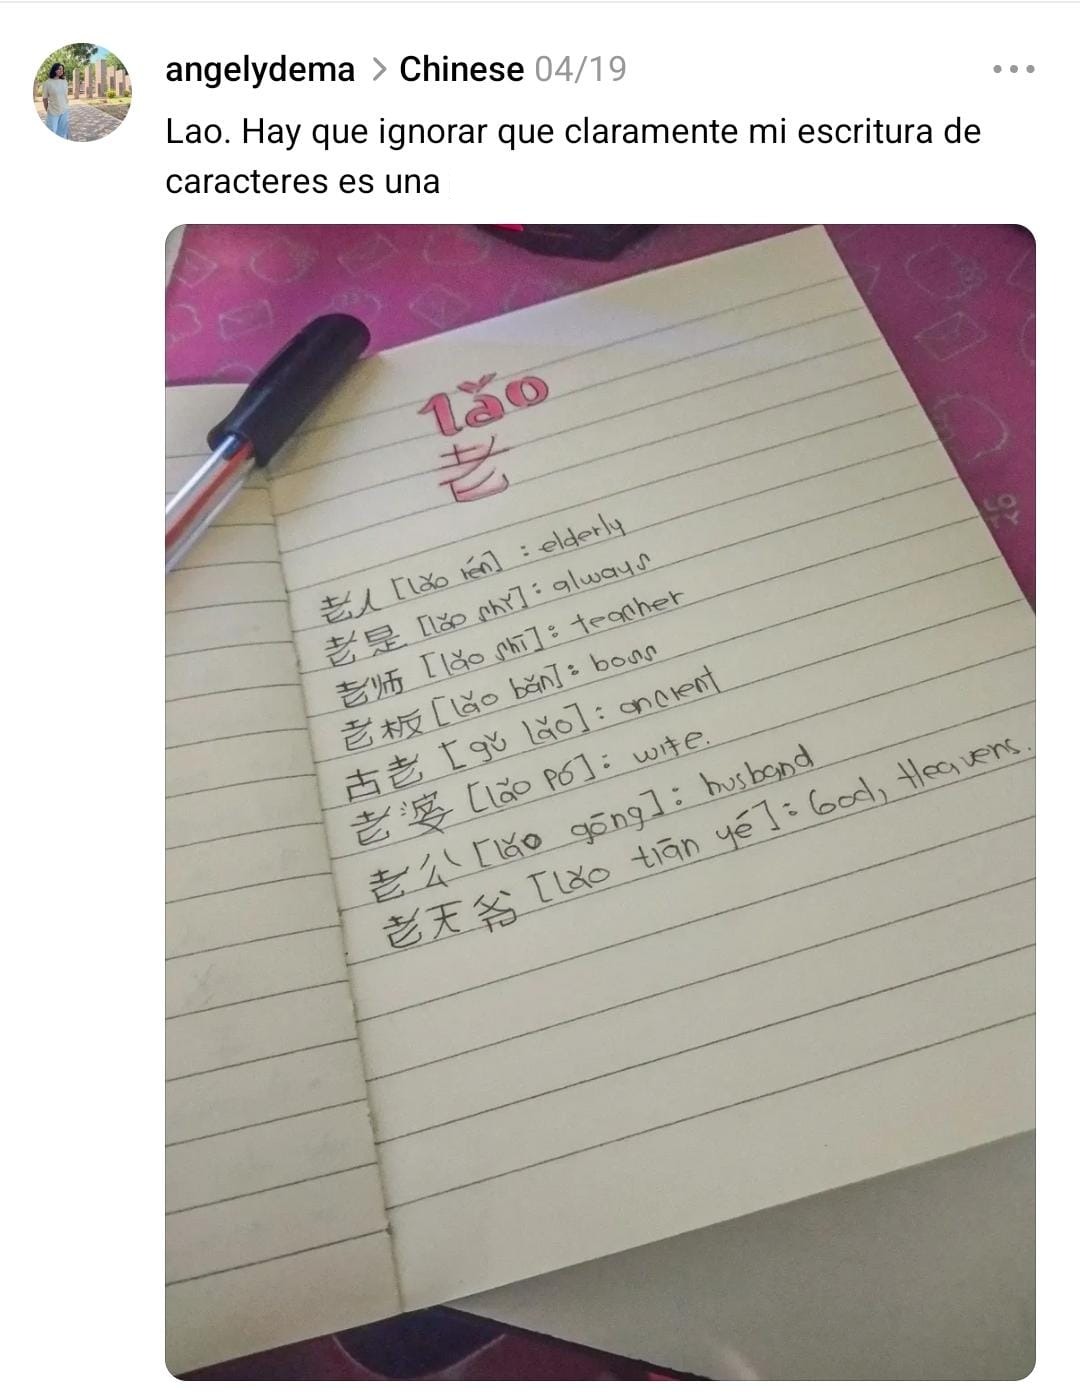 angelydema > Chinese 04/19
Lao. Hay que ignorar que claramente mi escritura de
caracteres es una
lǎo
老
老人 [lǎo rén] : elderly
老是 [lǎo shì] : always
老师 [lǎo shī] : teacher
老板 [lǎo bǎn] : boss
古老 [gǔ lǎo] : ancient
老婆 [lǎo pó] : wife.
老公 [lǎo gōng] : husband
老天爷 [lǎo tiān yé] : God, Heavens.